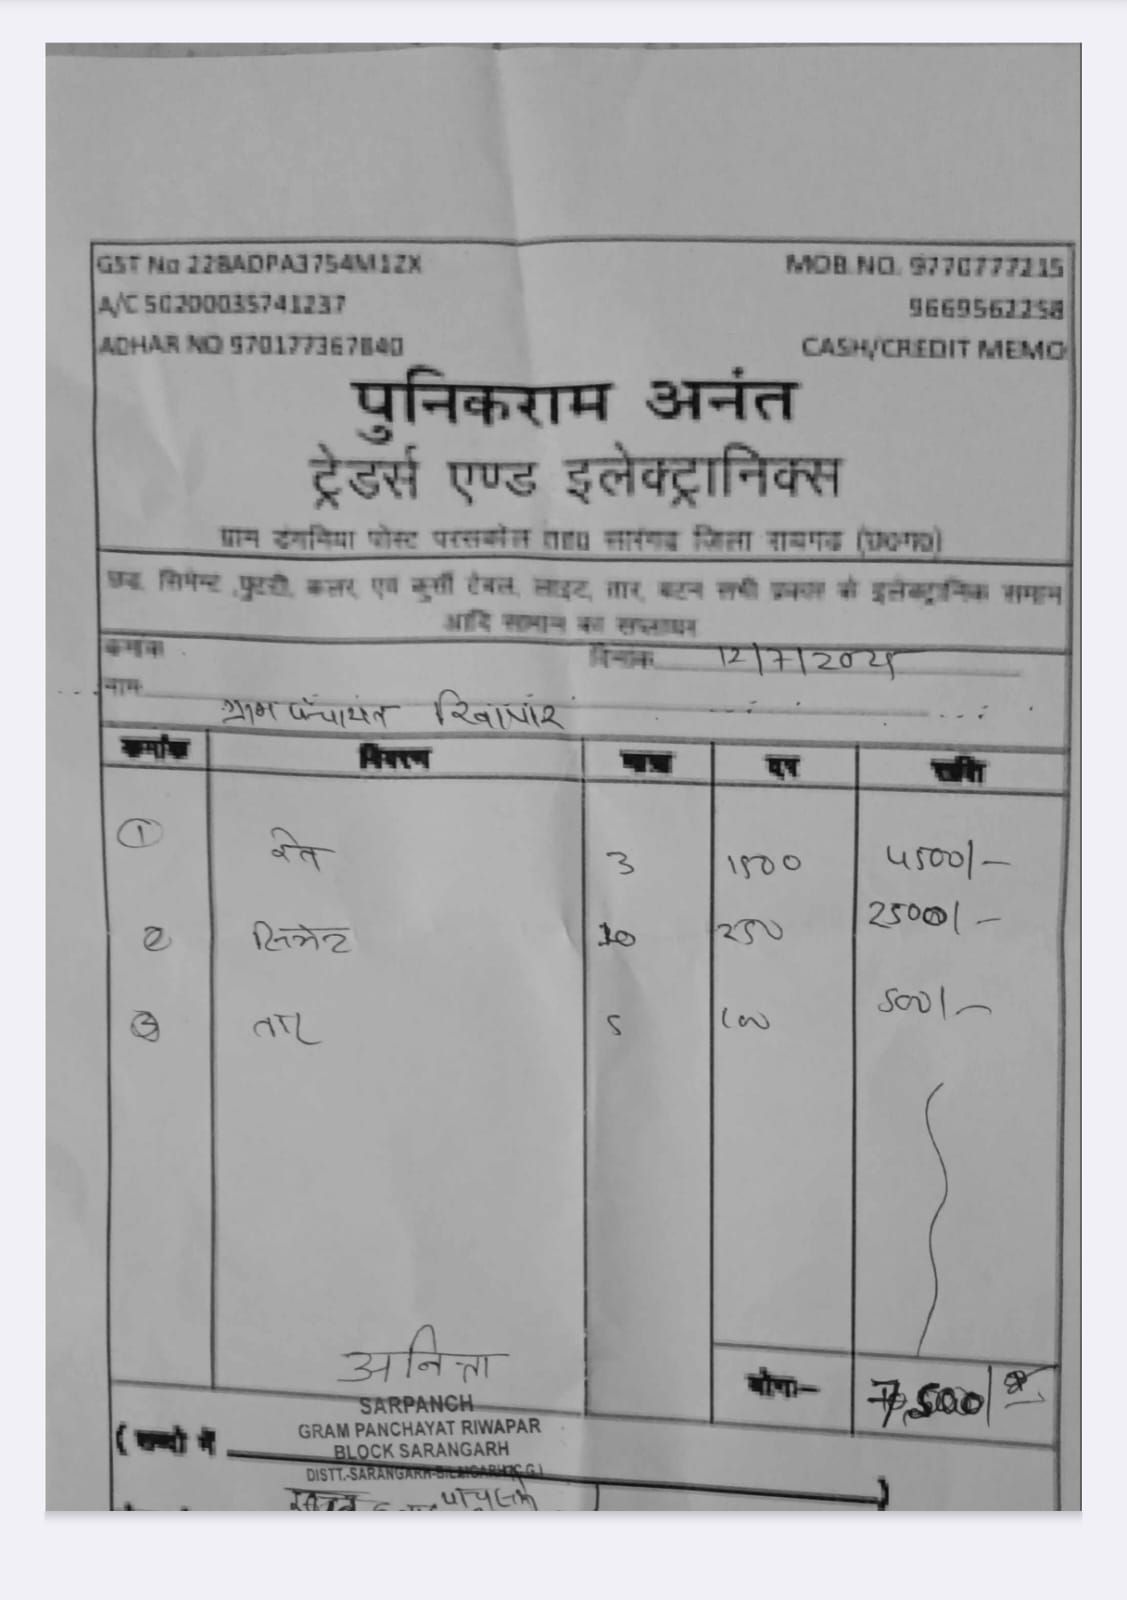 GST No 22BADPA3754M1ZX
MOB.NO. 9770777215
A/C 50200035741237
9669562258
ADHAR NO 970177367840
CASH/CREDIT MEMO
पुनिकराम अनंत
ट्रेडर्स एण्ड इलेक्ट्रानिक्स
ग्राम डंगनिया पोस्ट परसकोल तह0 सारंगढ़ जिला रायगढ़ (छ0ग0)
छड़, सिमेन्ट ,पुट्टी, कलर, एवं कुर्सी टेबल, लाइट, तार, बटन सभी प्रकार के इलेक्ट्रानिक सामान
आदि सामान का सप्लायर
क्रमांक दिनांक 12/7/2025
नाम
ग्राम पंचायत रिवापार
क्रमांक विवरण मात्रा दर राशि
1 रेत 3 1500 4500/-
2 सिमेंट 10 250 /-
3 तार 5 100 500/-
अनिता
योग- 7,500/-
SARPANCH
GRAM PANCHAYAT RIWAPAR
( शब्दों में
BLOCK SARANGARH
DISTT.-SARANGARH-BILAIGARH (C.G.)